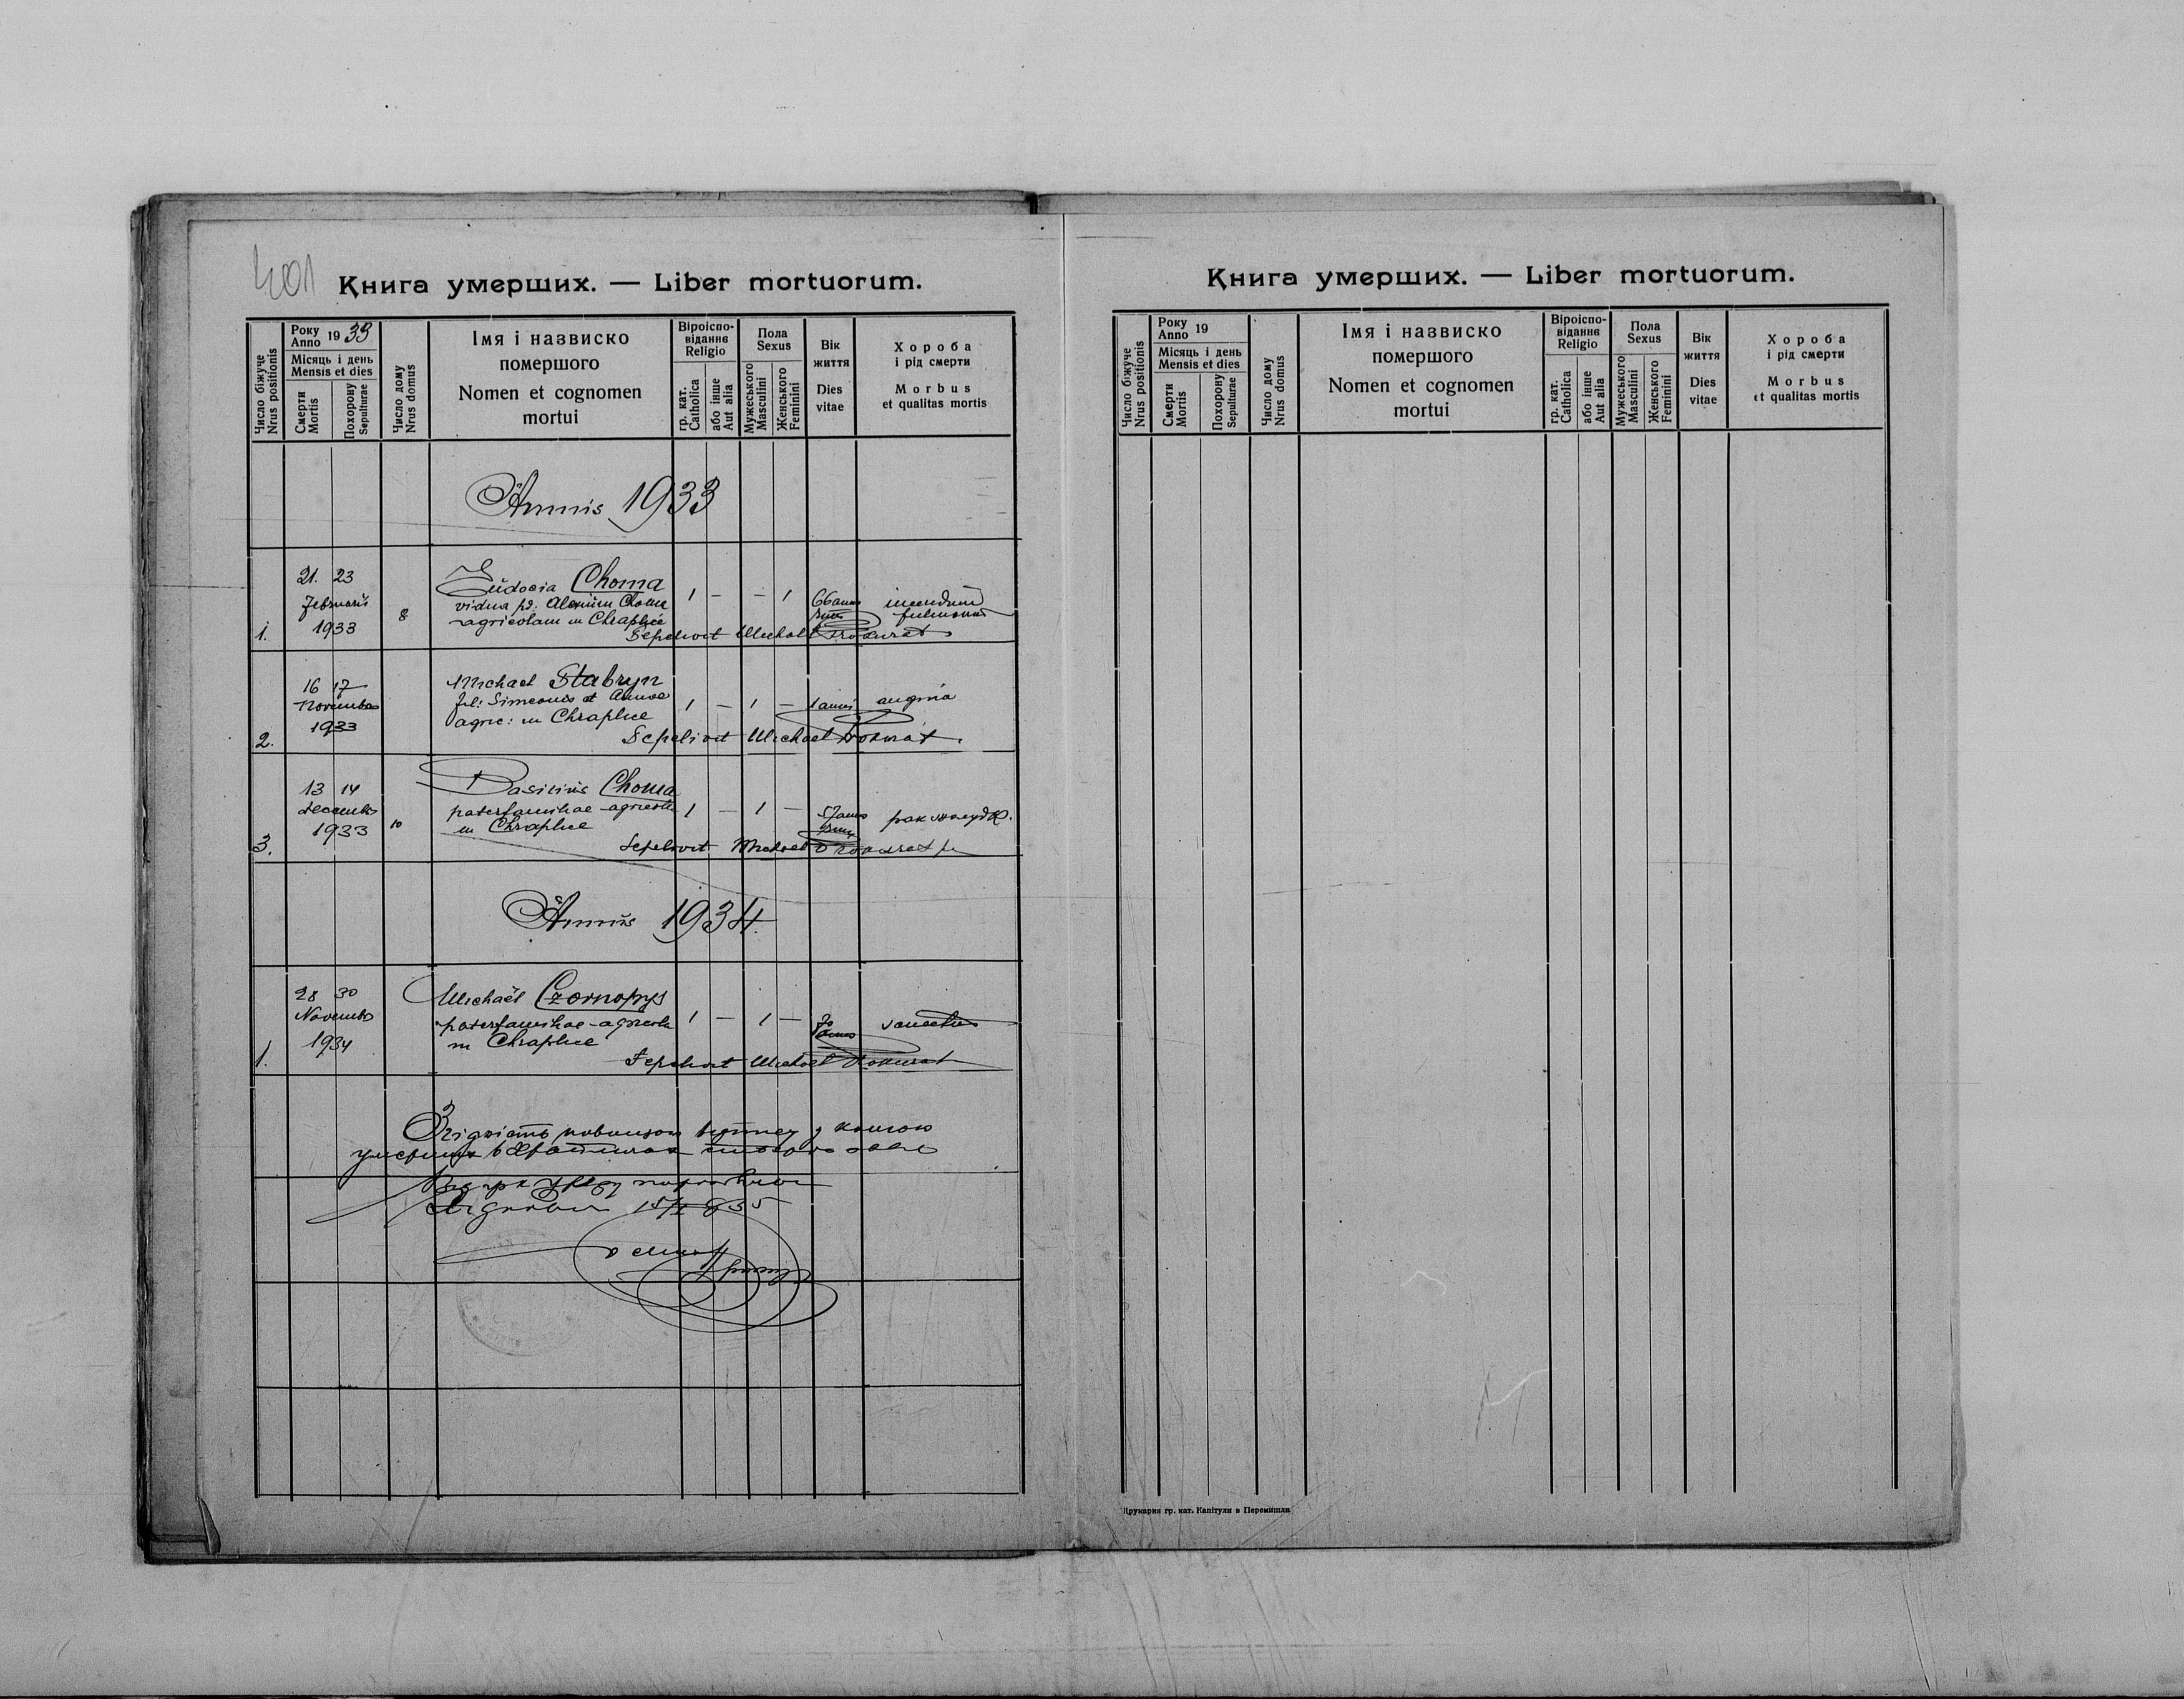 401
Книга умерших. — Liber mortuorum.
Число біжуче
Nrus positionis
Року
Anno 1933
Місяць і день
Mensis et dies
Смерти
Mortis
Похорону
Sepulturae
Число дому
Nrus domus
Імя і назвиско
помершого
Nomen et cognomen
mortui
Віроіспо-
віданнє
Religio
гр. кат.
Catholica
або інше
Aut alia
Пола
Sexus
Мужеського
Masculini
Женського
Feminini
Вік
життя
Dies
vitae
Хороба
і рід смерти
Morbus
et qualitas mortis
Annus 1933
1.
21. 23
Februarii
1933
8
Eudocia Choma
vidua
agricolam in Chraplice
1 — — 1
66 annos
Sepelivit Michael Prokurat
2.
16 17
Novembris
1933
Michael Stabryn
fil: Simeonis et Annae
agric: in Chraplice
1 — 1 —
1 anni
angina
Sepelivit Michael Prokurat.
3.
13 14
Decembris
1933
10
Basilius Choma
paterfamiliae - agricola
in Chraplice
1 — 1 —
57 annos
рак
Sepelivit Michael Prokurat
Annus 1934
1.
28 30
Novembris
1934
Michaël Czornopys
paterfamiliae - agricola
in Chraplice
1 — 1 —
70
annos
Sepelivit Michael Prokurat
Книга умерших. — Liber mortuorum.
Число біжуче
Nrus positionis
Року
Anno 19
Місяць і день
Mensis et dies
Смерти
Mortis
Похорону
Sepulturae
Число дому
Nrus domus
Імя і назвиско
помершого
Nomen et cognomen
mortui
Віроіспо-
віданнє
Religio
гр. кат.
Catholica
або інше
Aut alia
Пола
Sexus
Мужеського
Masculini
Женського
Feminini
Вік
життя
Dies
vitae
Хороба
і рід смерти
Morbus
et qualitas mortis
Друкарня гр. кат. Капітули в Перемишли